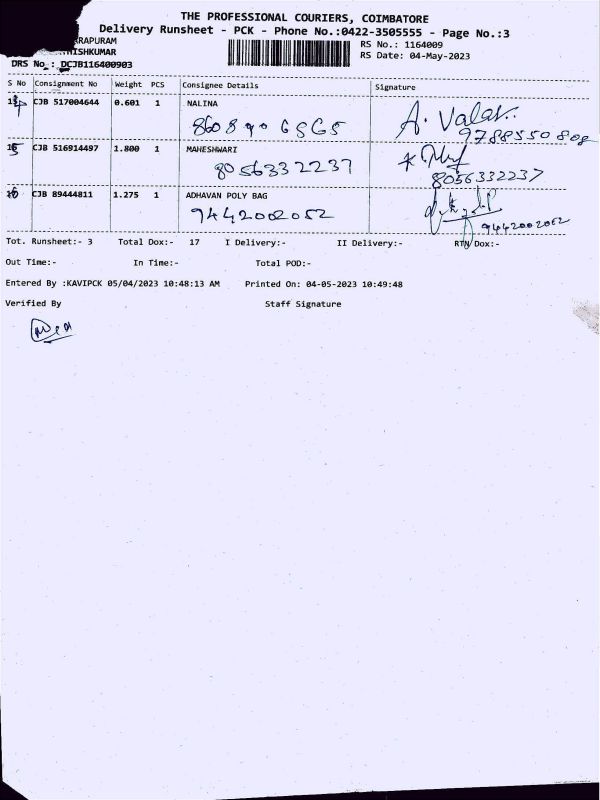 THE PROFESSIONAL COURIERS, COIMBATORE
Delivery Runsheet - PCK - Phone No.:0422-3505555 - Page No.:3
RAPURAM
HISHKUMAR
RS No.: 1164009
DRS No. : DCJB116400903
RS Date: 04-May-2023
S No Consignment No Weight PCS Consignee Details Signature
CJB 517004644 0.601 1 NALINA A. Valar.
9788550808
CJB 516914497 1.800 1 MAHESHWARI
8056332237 8056332237
CJB 89444811 1.275 1 ADHAVAN POLY BAG
9442002052 9442002052
Tot. Runsheet:- 3 Total Dox:- 17 I Delivery:- II Delivery:- RTN Dox:-
Out Time:- In Time:- Total POD:-
Entered By :KAVIPCK 05/04/2023 10:48:13 AM Printed On: 04-05-2023 10:49:48
Verified By Staff Signature